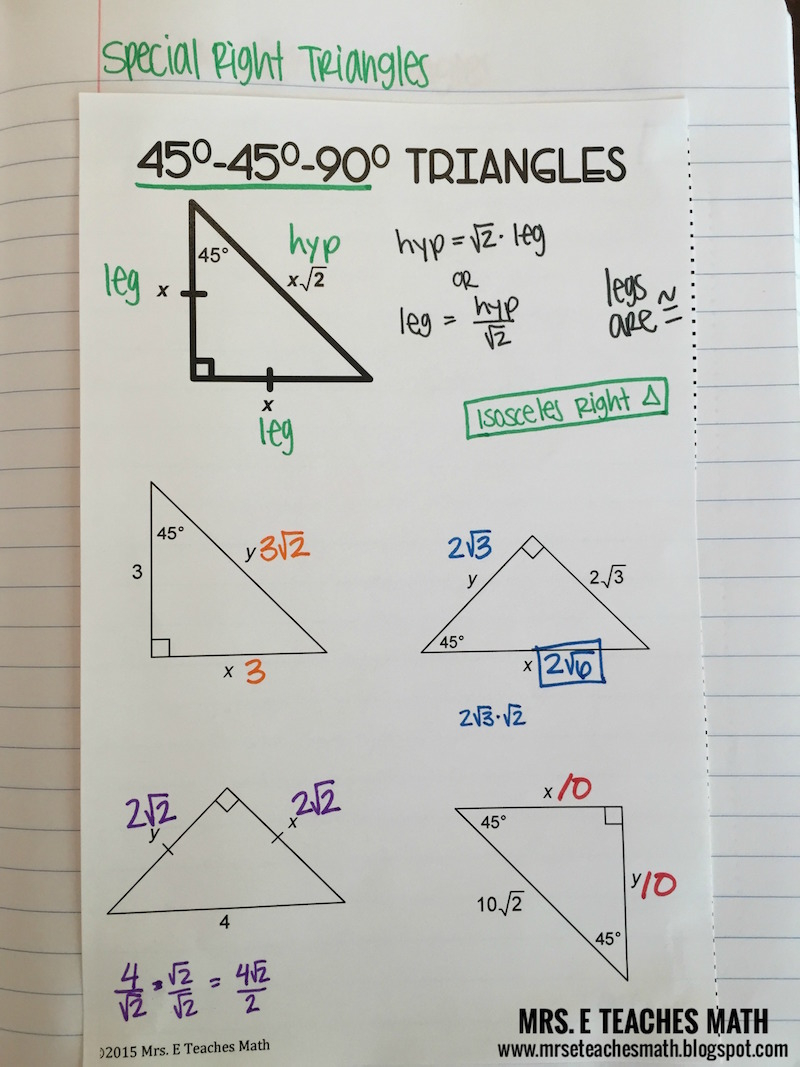 Special Right Triangles
45°-45°-90° TRIANGLES
45°
hyp
x√2
leg x
x
leg
hyp = √2 · leg
OR
leg = hyp/√2
legs
are ≅
Isosceles Right △
45°
3
y 3√2
x 3
2√3
y
2√3
45°
x 2√6
2√3 · √2
2√2
y
2√2
x
4
4/√2 · √2/√2 = 4√2/2
x 10
45°
y 10
10√2
45°
©2015 Mrs. E Teaches Math
MRS. E TEACHES MATH
www.mrseteachesmath.blogspot.com